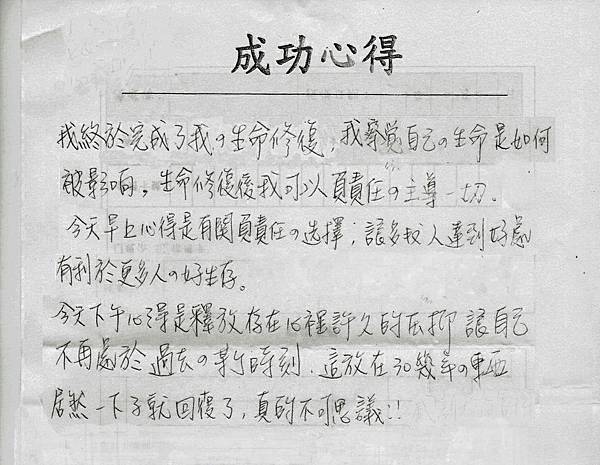 成功心得
我終於完成了我の生命修復，我察覺自己の生命是如何
被影响。生命修復後我可以負責任の主導一切.
今天早上心得是有関負責任の选擇；讓多我人達到好處
有利於更多人の好生存。
今天下午心得是釋放存在心裡許久的压抑 讓自己
不再處於過去の某个時刻. 這放在30幾年の東西
居然一下子就回復了，真的不可思議!!